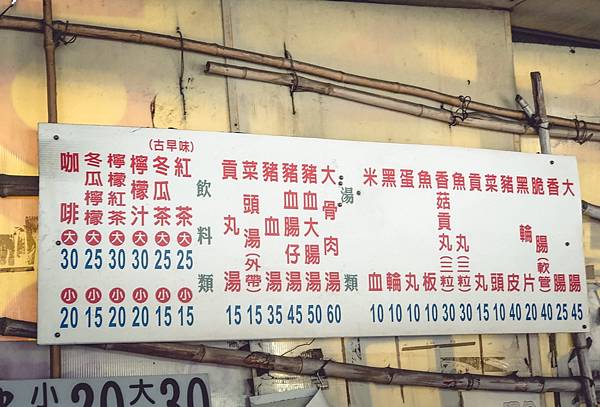 大腸 45
香腸 25
脆腸(軟管) 40
黑輪片 20
豬皮 40
菜頭 10
貢丸 15
魚丸(三粒) 30
香菇貢丸(三粒) 30
魚板 10
蛋丸 10
黑輪 10
米血 10
湯類
大骨肉湯 60
豬血大腸湯 50
豬血腸仔湯 45
豬血湯 35
菜頭湯(外帶) 15
貢丸湯 15
飲料類
(古早味)
紅茶 大 25 小 15
冬瓜茶 大 25 小 15
檸檬汁 大 30 小 20
檸檬紅茶 大 30 小 20
冬瓜檸檬 大 25 小 15
咖啡 大 30 小 20
小20 大30